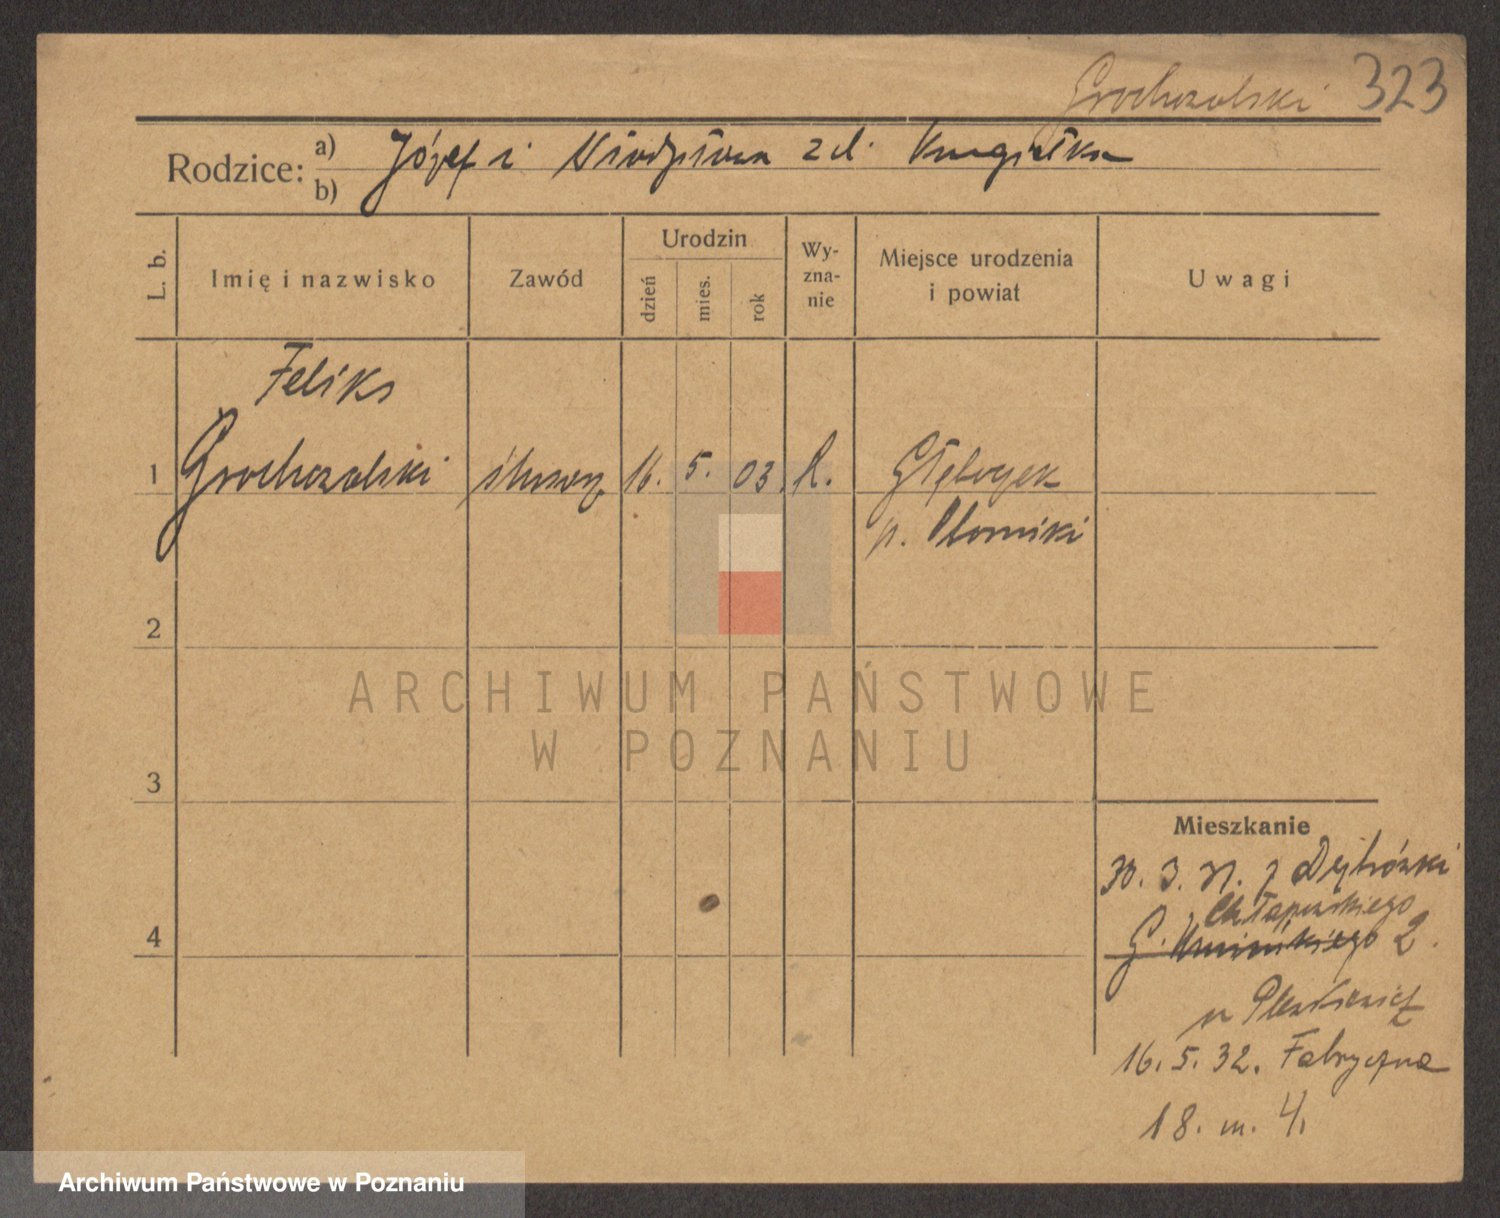 Grochowalski 323
Rodzice: a) Józef i Władysława zd.
b)
L. b.
Imię i nazwisko
Zawód
Urodzin
dzień
mies.
rok
Wy-
zna-
nie
Miejsce urodzenia
i powiat
Uwagi
Feliks
1 Grochowalski ślusarz 16. 5. 03 R. Głęboczek
p.
2
3
4
ARCHIWUM PAŃSTWOWE
W POZNANIU
Mieszkanie
30. 3. 31. z Dębówki
Chłapowskiego
G. 2.
16. 5. 32. Fabryczna
18. m. 4.
Archiwum Państwowe w Poznaniu